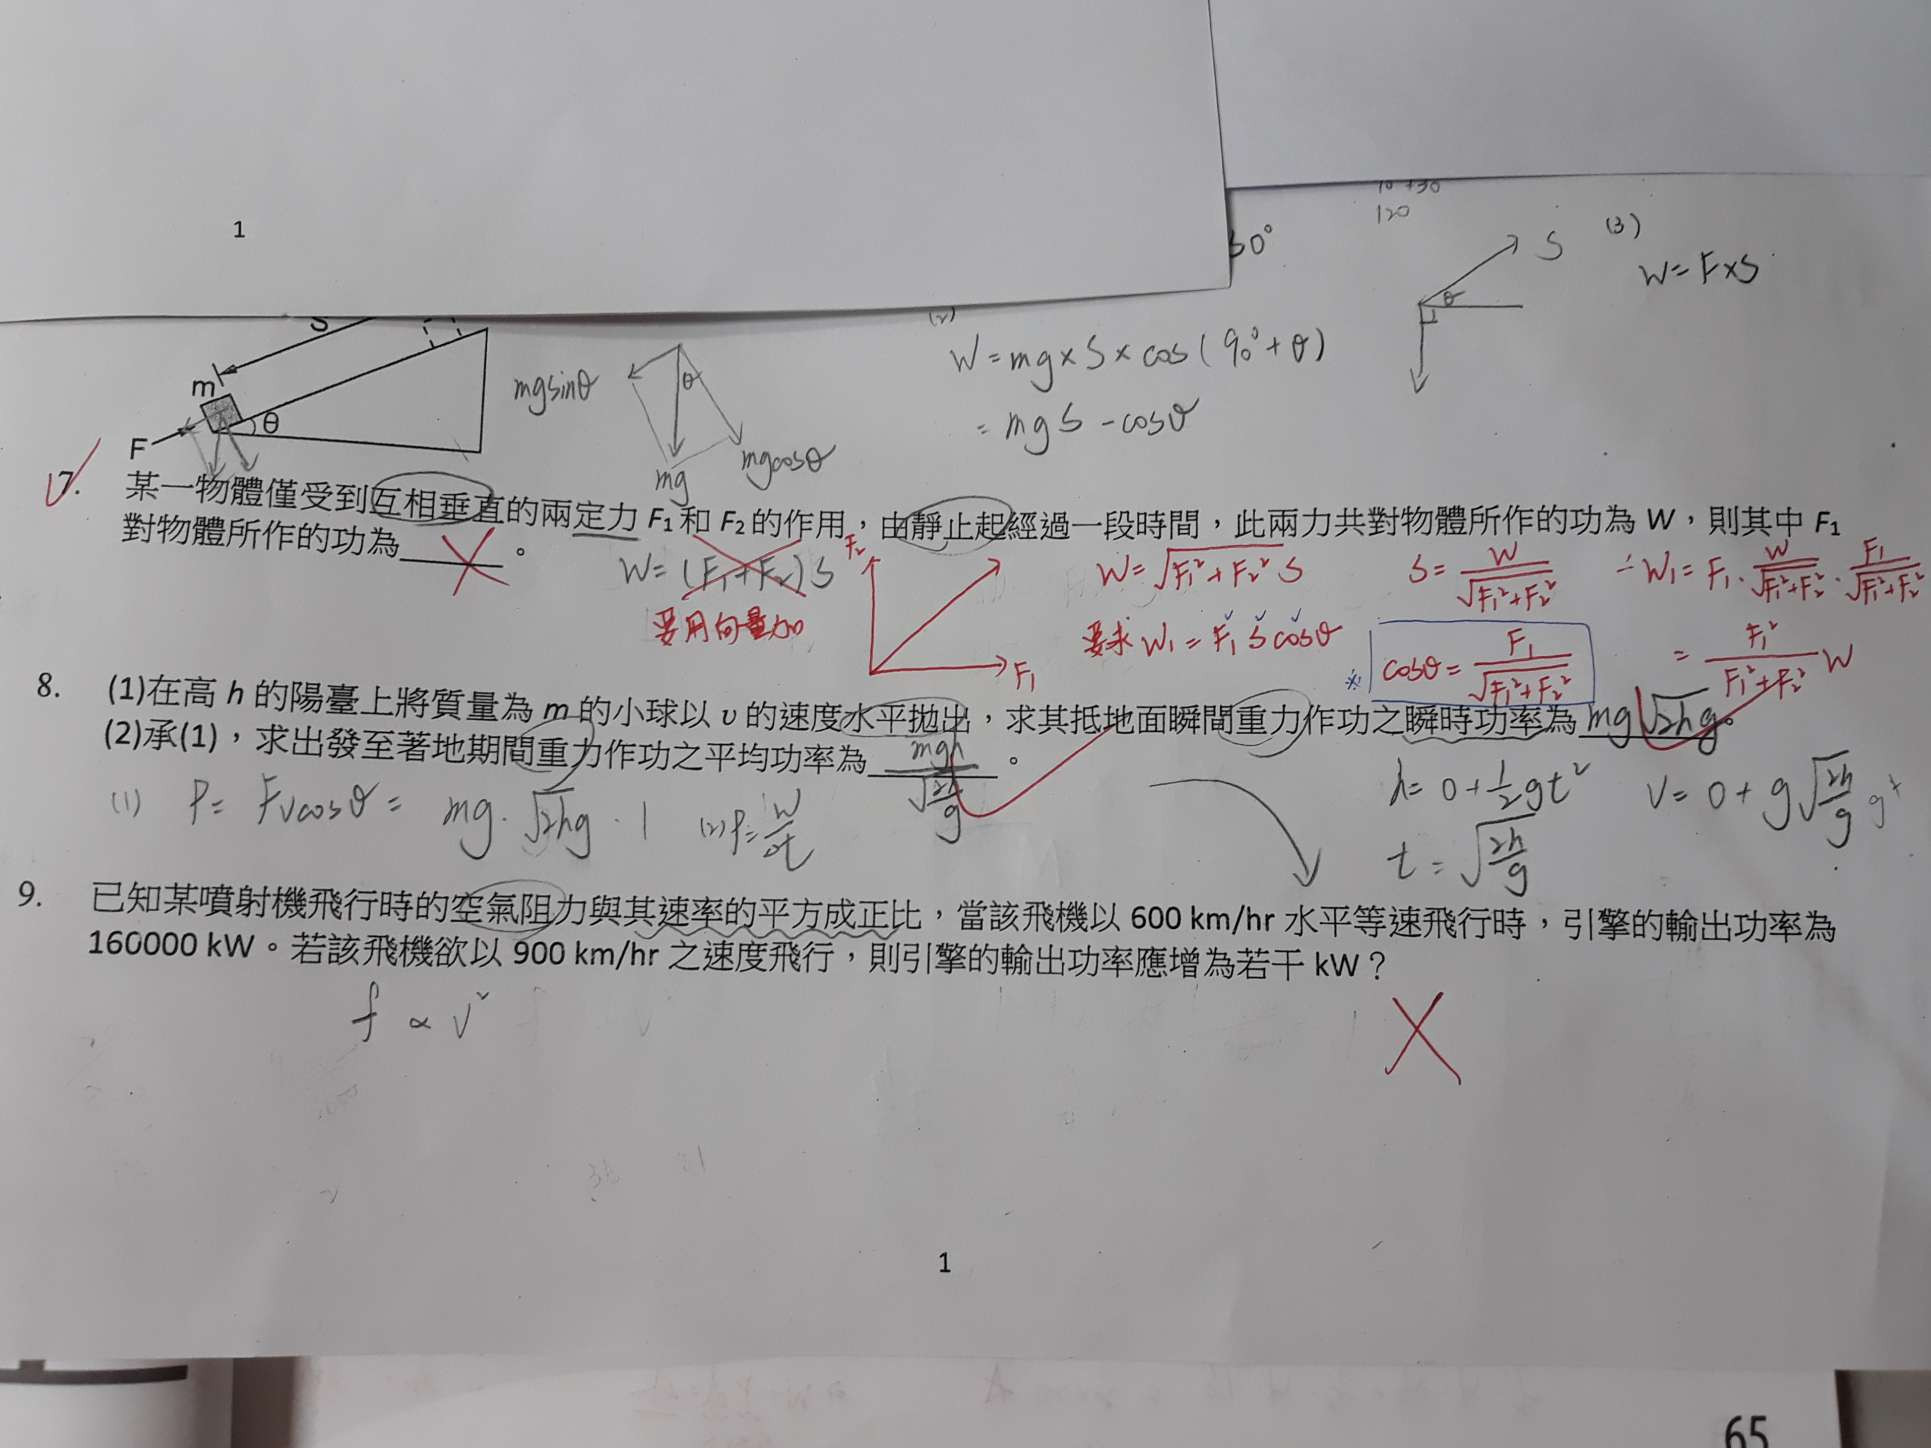 1
120
(3)
S
W = F×S
θ
S
m
θ
F
mgsinθ
θ
mg
mgcosθ
(2)
W = mg × S × cos(90°+θ)
= mgS -cosθ
7. 某一物體僅受到互相垂直的兩定力 F₁ 和 F₂ 的作用,由靜止起經過一段時間,此兩力共對物體所作的功為 W,則其中 F₁
對物體所作的功為______。
W = (F₁+F₂)S
要用向量加
F₂
F₁
W = √(F₁²+F₂²) S
S = W/√(F₁²+F₂²)
∴W₁ = F₁ · W/√(F₁²+F₂²) · F₁/√(F₁²+F₂²)
要求 W₁ = F₁ S cosθ
※ cosθ = F₁/√(F₁²+F₂²)
= F₁²/(F₁²+F₂²) W
8. (1)在高 h 的陽臺上將質量為 m 的小球以 υ 的速度水平拋出,求其抵地面瞬間重力作功之瞬時功率為 mg√2hg。
(2)承(1),求出發至著地期間重力作功之平均功率為 mgh/√(2h/g)。
(1) P = Fvcosθ = mg · √2hg · 1
(2) P = W/Δt
h = 0 + ½gt²
t = √(2h/g)
V = 0 + g√(2h/g)
9. 已知某噴射機飛行時的空氣阻力與其速率的平方成正比,當該飛機以 600 km/hr 水平等速飛行時,引擎的輸出功率為
160000 kW。若該飛機欲以 900 km/hr 之速度飛行,則引擎的輸出功率應增為若干 kW?
f ∝ v²
1
65